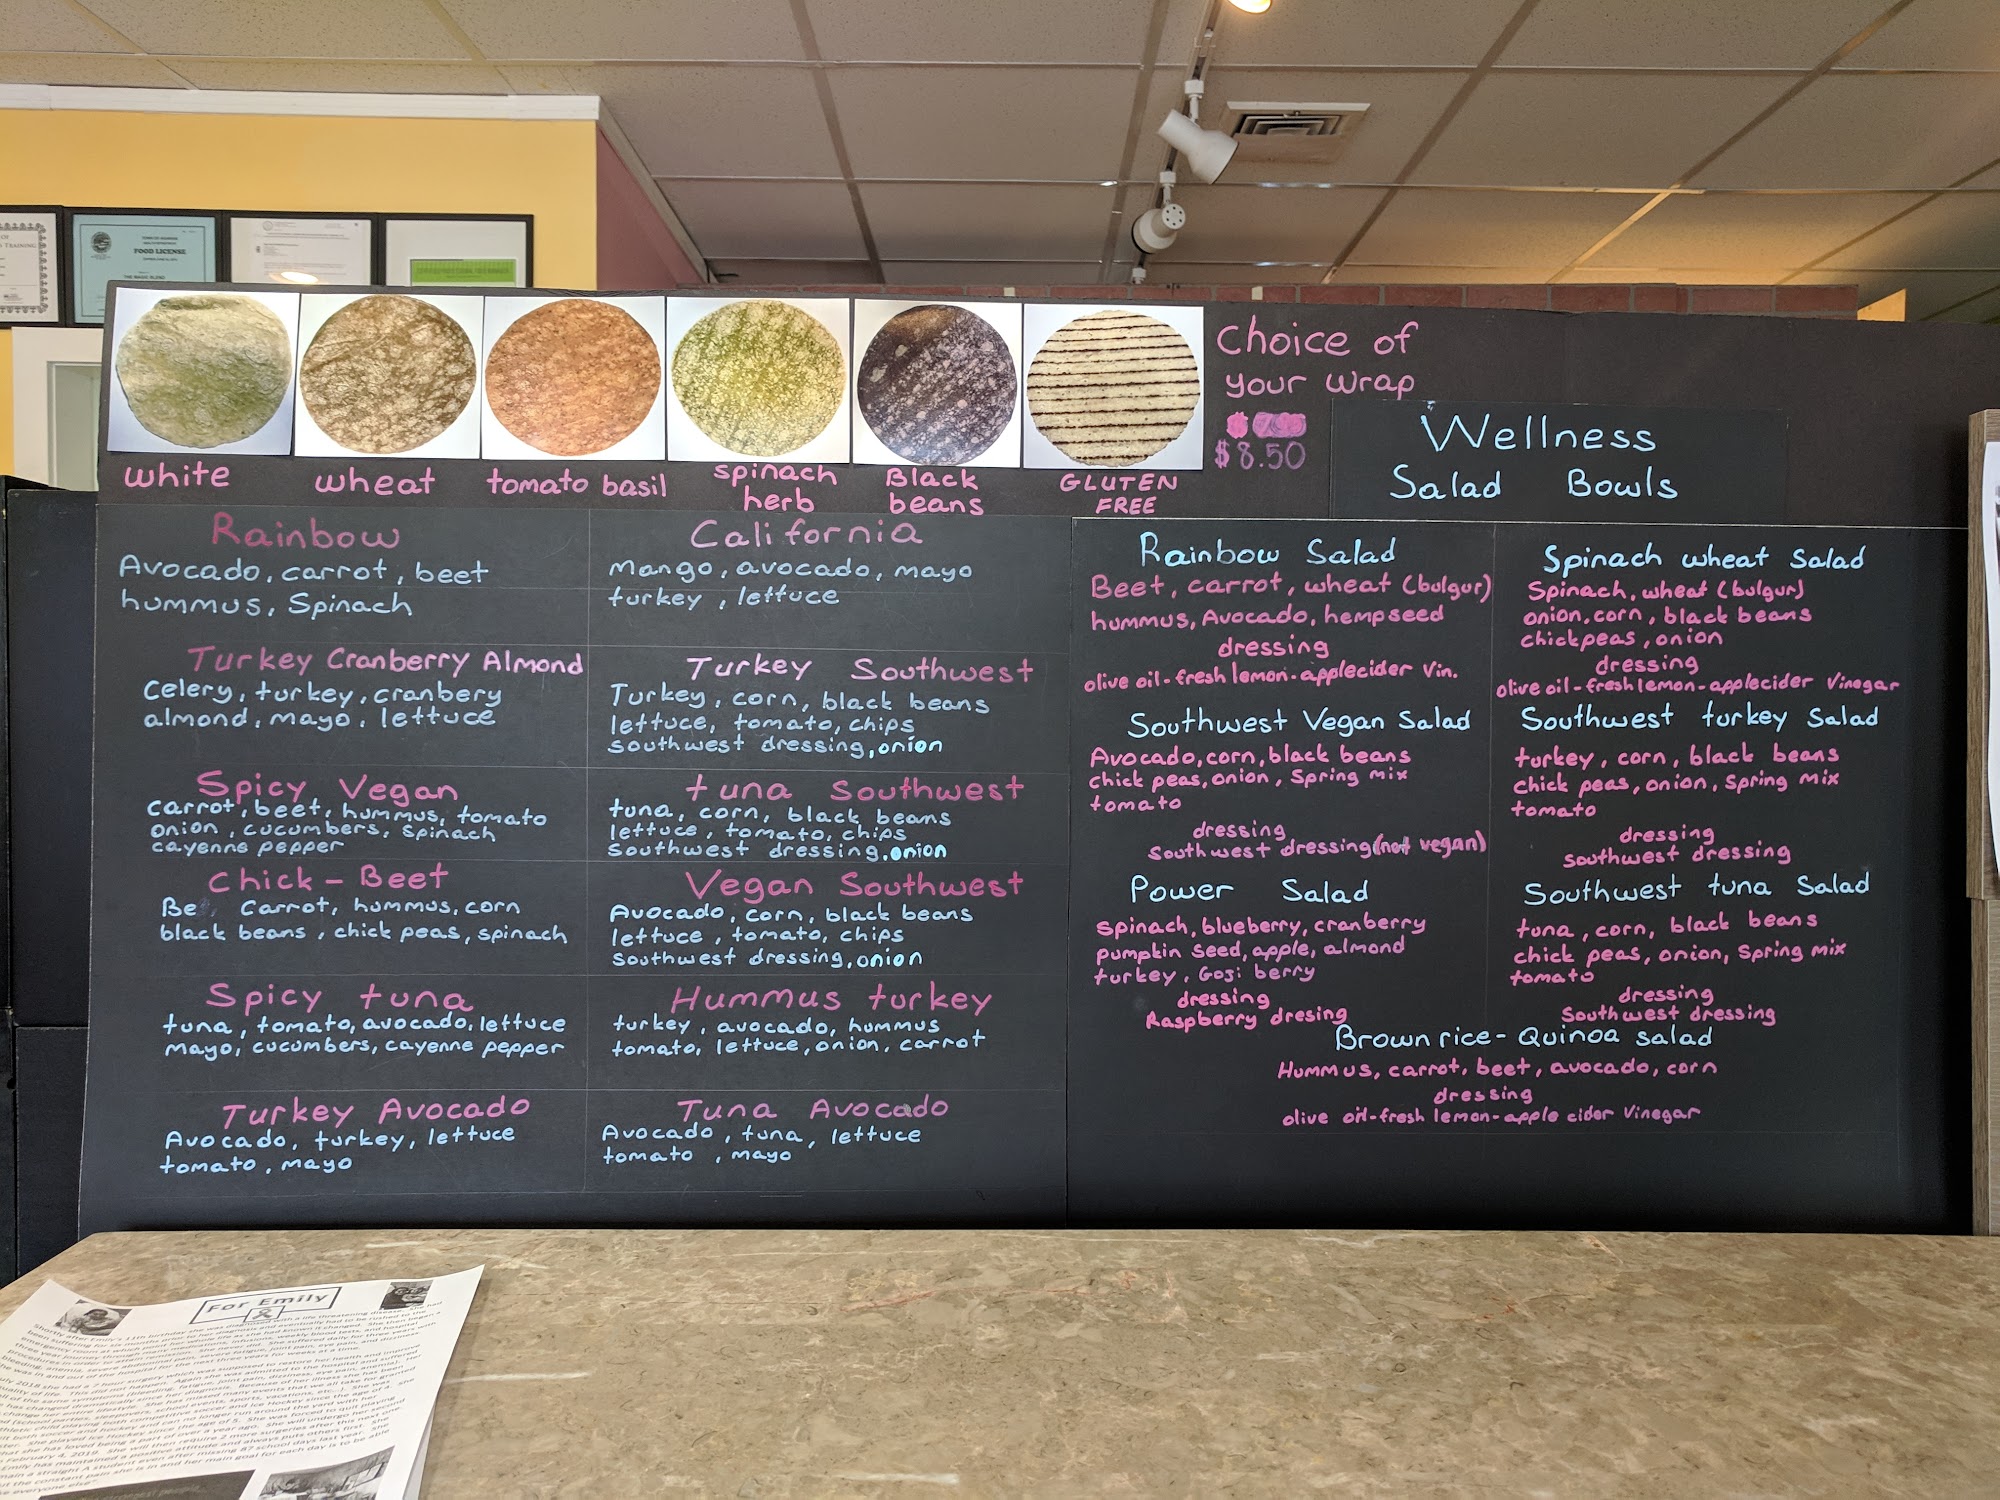 TRAINING
FOOD LICENSE
THE MAGIC BLEND
white
wheat
tomato basil
spinach
herb
Black
beans
GLUTEN
FREE
Choice of
your wrap
$8.50
Rainbow
Avocado, carrot, beet
hummus, Spinach
California
Mango, avocado, mayo
turkey, lettuce
Turkey Cranberry Almond
Celery, turkey, cranbery
almond, mayo, lettuce
Turkey Southwest
Turkey, corn, black beans
lettuce, tomato, chips
southwest dressing, onion
Spicy Vegan
carrot, beet, hummus, tomato
onion, cucumbers, spinach
cayenne pepper
tuna Southwest
tuna, corn, black beans
lettuce, tomato, chips
Southwest dressing, onion
Chick-Beet
Be Carrot, hummus, corn
black beans, chick peas, spinach
Vegan Southwest
Avocado, corn, black beans
lettuce, tomato, chips
Southwest dressing, onion
Spicy tuna
tuna, tomato, avocado, lettuce
mayo, cucumbers, cayenne pepper
Hummus turkey
turkey, avocado, hummus
tomato, lettuce, onion, carrot
Turkey Avocado
Avocado, turkey, lettuce
tomato, mayo
Tuna Avocado
Avocado, tuna, lettuce
tomato, mayo
Wellness
Salad Bowls
Rainbow Salad
Beet, carrot, wheat (bulgur)
hummus, Avocado, hempseed
dressing
olive oil-fresh lemon-applecider Vin.
Spinach wheat Salad
Spinach, wheat (bulgur)
onion, corn, black beans
chickpeas, onion
dressing
olive oil-fresh lemon-applecider Vinegar
Southwest Vegan Salad
Avocado, corn, black beans
chick peas, onion, Spring mix
tomato
dressing
Southwest dressing (not vegan)
Southwest turkey Salad
turkey, corn, black beans
chick peas, onion, Spring mix
tomato
dressing
Southwest dressing
Power Salad
Spinach, blueberry, cranberry
pumpkin seed, apple, almond
turkey, Goji berry
dressing
Raspberry dresing
Southwest tuna Salad
tuna, corn, black beans
chick peas, onion, Spring mix
tomato
dressing
Southwest dressing
Brown rice-Quinoa salad
Hummus, carrot, beet, avocado, corn
dressing
olive oil-fresh lemon-apple cider Vinegar
For Emily